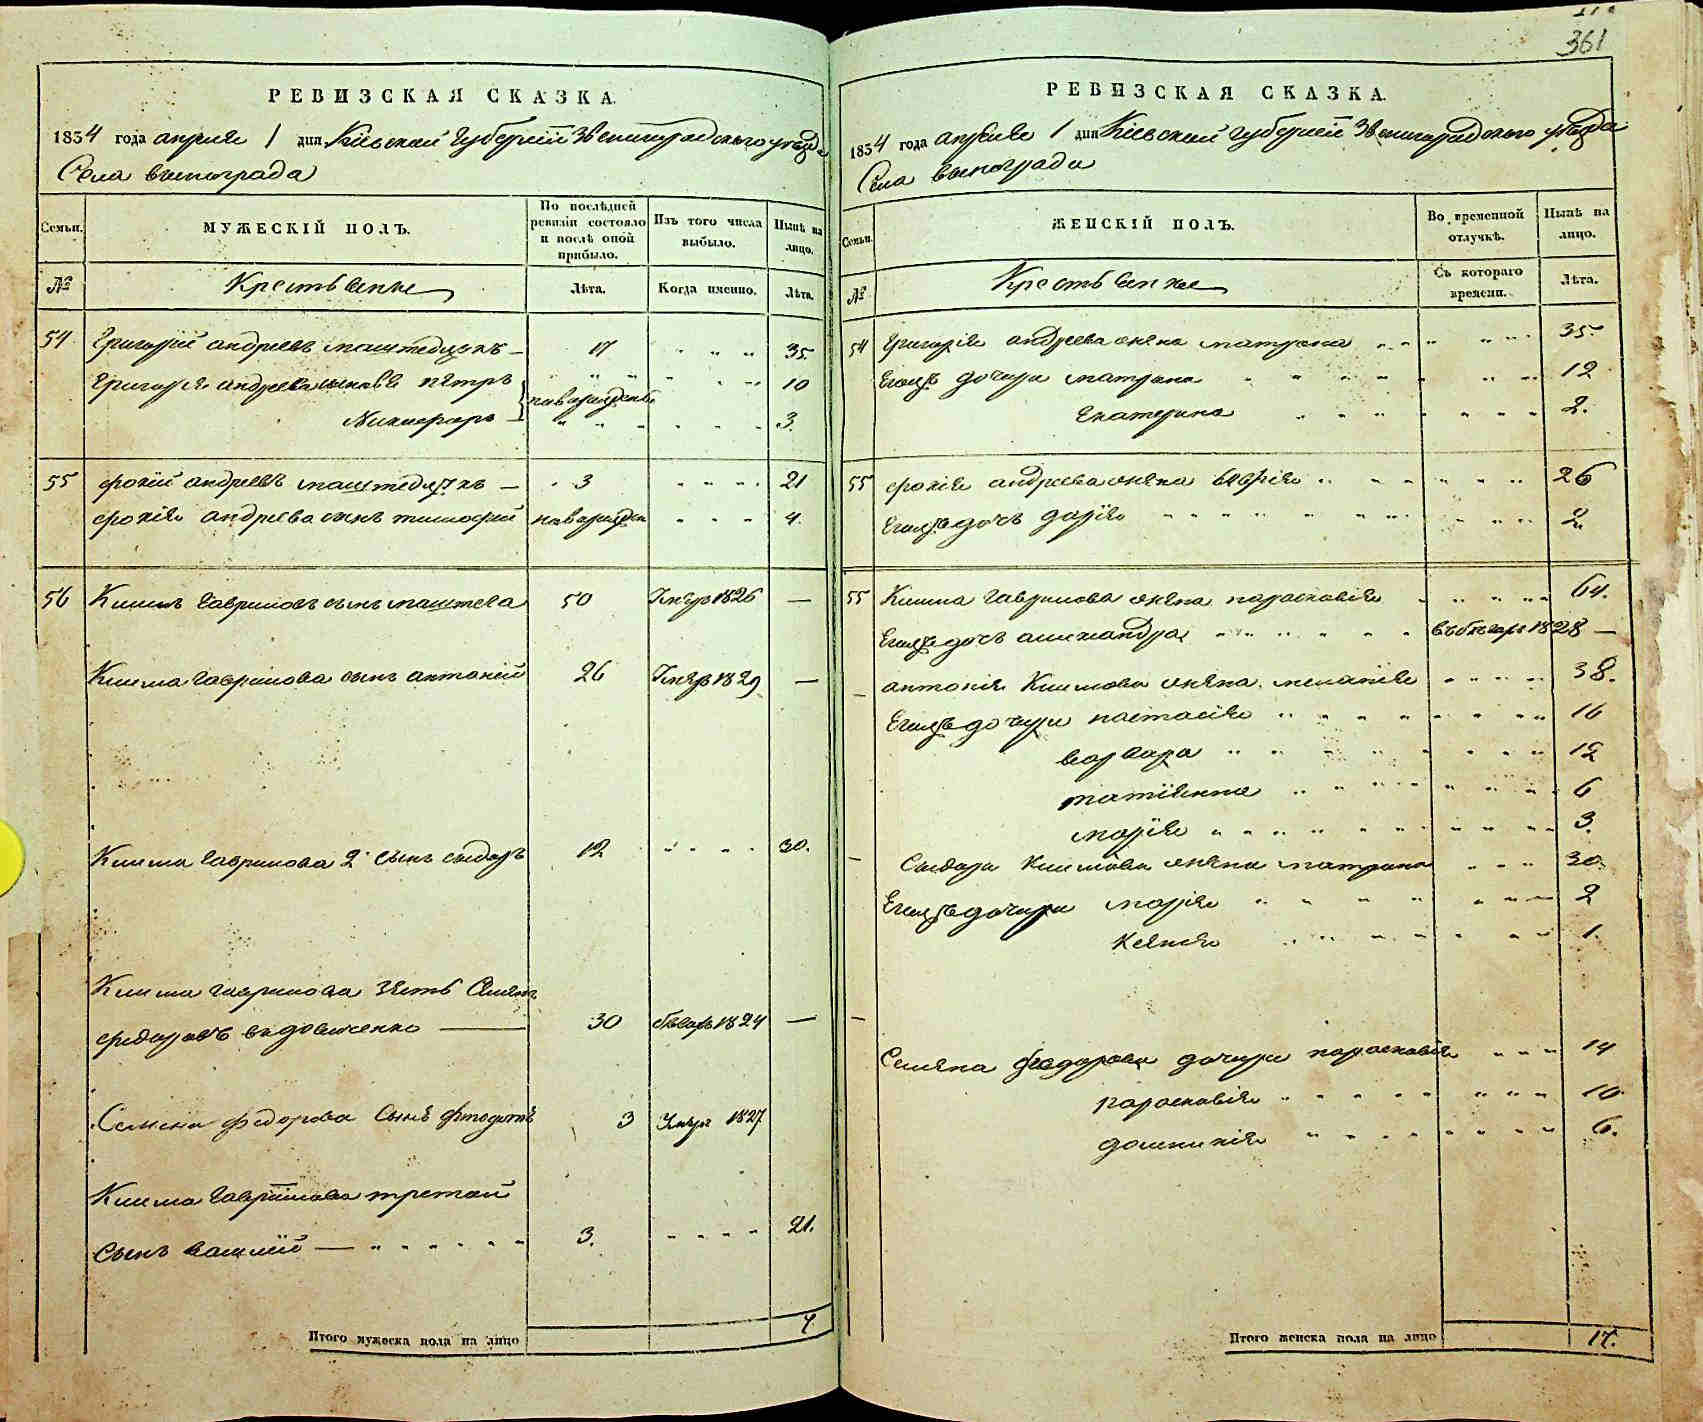 361
РЕВИЗСКАЯ СКАЗКА.
1834 года апреля 1 дня Кіевской Губерніи Звенигородского уезда
Села винограда
Семьи.
МУЖЕСКІЙ ПОЛЪ.
По послѣдней ревизіи состояло и послѣ оной прибыло.
Изъ того числа выбыло.
Нынѣ на лицо.
№
Крестьяне
Лѣта.
Когда именно.
Лѣта.
54 Григорій андреевъ 17 35
Григорія андреева сыновья пётръ 10
Никифоръ новорожденные 3.
55 фокій андреевъ 3 21
фокія андреева сынъ тимофей новорожден 4.
56 Климъ Гавриловъ сынъ 50 Умеръ 1826 —
Клима Гаврилова сынъ антоній 26 Умеръ 1829 —
Клима Гаврилова 2й сынъ сидоръ 12 30.
Клима Гаврилова зять Семенъ
федоровъ вдовиченко — 30 бѣгахъ 1824 —
Семена федорова Сынъ 3 Умеръ 1827
Клима Гаврилова третой
Сынъ василій — 3. 21.
Итого мужеска пола на лицо 7
РЕВИЗСКАЯ СКАЗКА.
1834 года апреля 1 дня Кіевской Губерніи Звенигородского уезда
Села винограда
Семьи.
ЖЕНСКІЙ ПОЛЪ.
Во временной отлучкѣ.
Нынѣ на лицо.
№
Крестьянки
Съ котораго времени.
Лѣта.
54 Григорія андреева жена матрона 35
Егожъ дочери матрона 12
Екатерина 2.
55 фокія андреева жена 26
Егожъ дочь дарія 2.
55 Клима гаврилова жена парасковія 64.
Егожъ дочь александра въ бѣгахъ 1828 —
— антонія Климова жена меланія 38.
Егожъ дочери настасія 16
варвара 12
татіянна 6
марія 3.
— Сидора Климова жена матрона 30.
Егожъ дочери марія 2
Ксенія 1.
— Семена федорова дочери парасковія 14
парасковія 10.
домникія 6.
Итого женска пола на лицо 17.